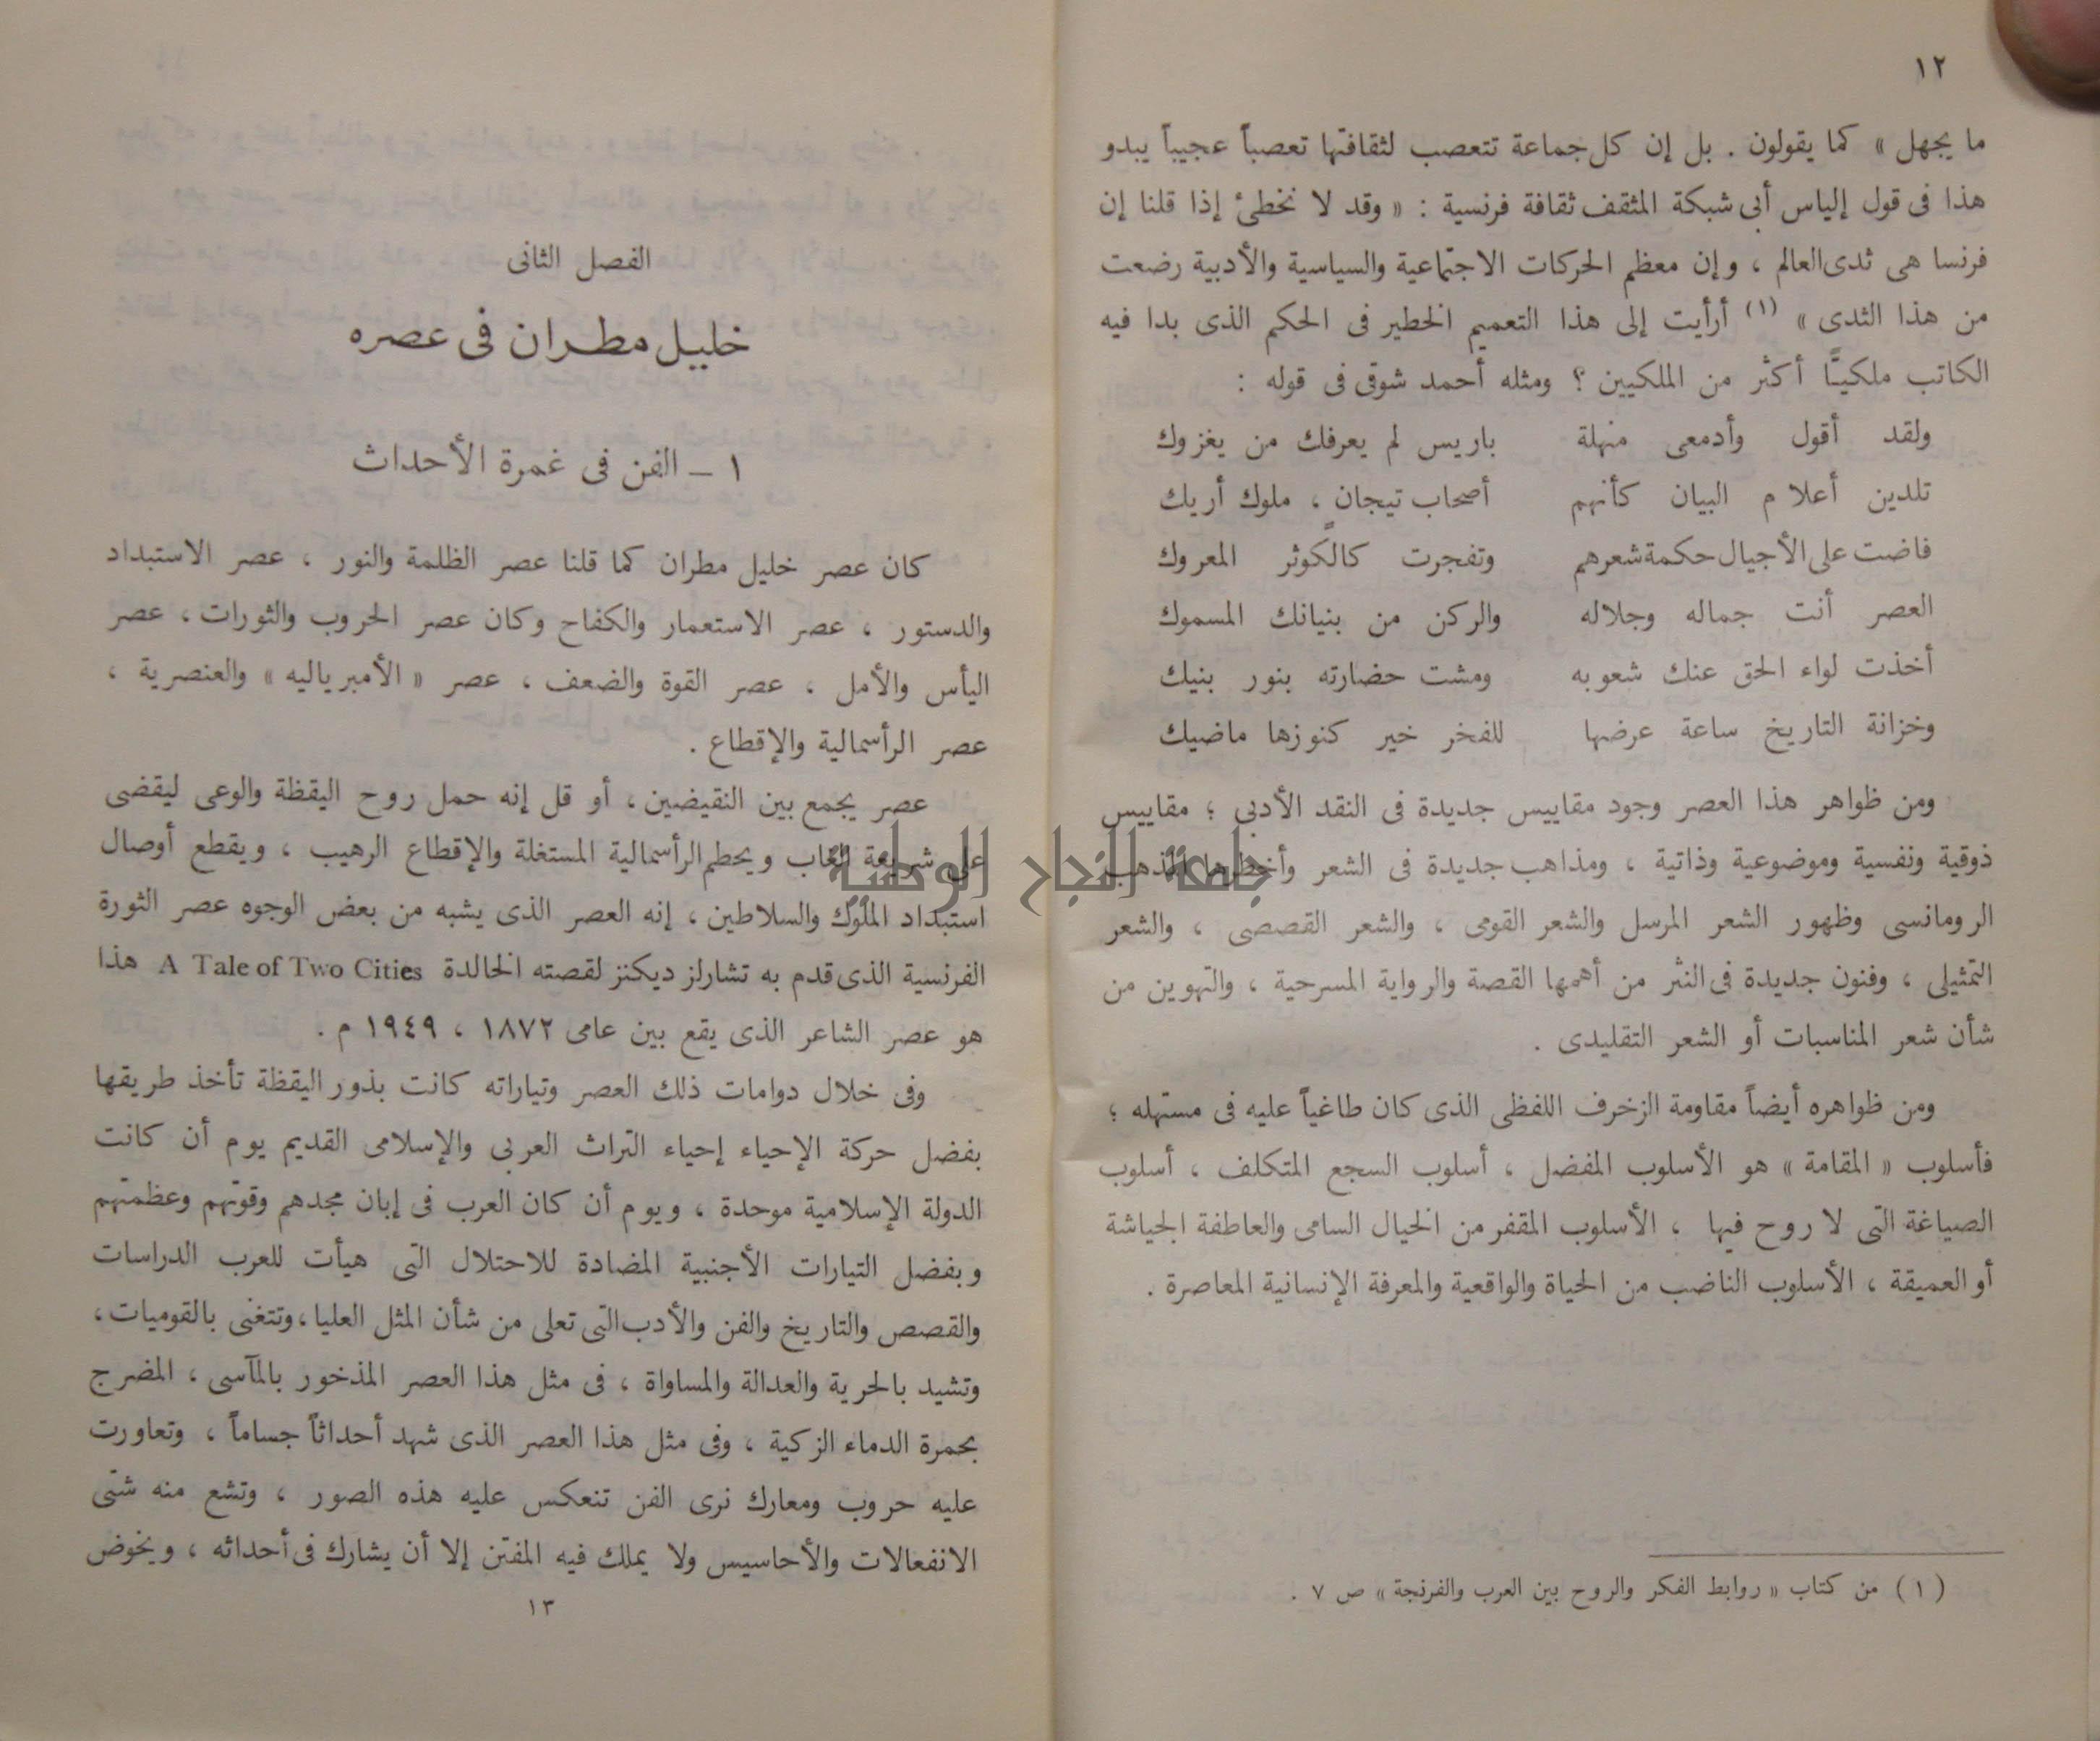 ١٢
ما يجهل » كما يقولون . بل إن كل جماعة تتعصب لثقافتها تعصباً عجيباً يبدو
هذا فى قول إلياس أبى شبكة المثقف ثقافة فرنسية : « وقد لا نخطئ إذا قلنا إن
فرنسا هى ثدى العالم ، وإن معظم الحركات الاجتماعية والسياسية والأدبية رضعت
من هذا الثدى » (١) أرأيت إلى هذا التعميم الخطير فى الحكم الذى بدا فيه
الكاتب ملكيًّا أكثر من الملكيين ؟ ومثله أحمد شوقى فى قوله :
ولقد أقول وأدمعى منهلة باريس لم يعرفك من يغزوك
تلدين أعلام البيان كأنهم أصحاب تيجان ، ملوك أريك
فاضت على الأجيال حكمة شعرهم وتفجرت كالكوثر المعروك
العصر أنت جماله وجلاله والركن من بنيانك المسموك
أخذت لواء الحق عنك شعوبه ومشت حضارته بنور بنيك
وخزانة التاريخ ساعة عرضها للفخر خير كنوزها ماضيك
ومن ظواهر هذا العصر وجود مقاييس جديدة فى النقد الأدبى ؛ مقاييس
ذوقية ونفسية وموضوعية وذاتية ، ومذاهب جديدة فى الشعر وأخطرها المذهب
الرومانسى وظهور الشعر المرسل والشعر القومى ، والشعر القصصى ، والشعر
التمثيلى ، وفنون جديدة فى النثر من أهمها القصة والرواية المسرحية ، والتهوين من
شأن شعر المناسبات أو الشعر التقليدى .
ومن ظواهره أيضاً مقاومة الزخرف اللفظى الذى كان طاغياً عليه فى مستهله ؛
فأسلوب « المقامة » هو الأسلوب المفضل ، أسلوب السجع المتكلف ، أسلوب
الصياغة التى لا روح فيها ، الأسلوب المقفر من الخيال السامى والعاطفة الجياشة
أو العميقة ، الأسلوب الناضب من الحياة والواقعية والمعرفة الإنسانية المعاصرة .
(١) من كتاب « روابط الفكر والروح بين العرب والفرنجة » ص ٧ .
جامعة النجاح الوطنية
الفصل الثانى
خليل مطران فى عصره
١ – الفن فى غمرة الأحداث
كان عصر خليل مطران كما قلنا عصر الظلمة والنور ، عصر الاستبداد
والدستور ، عصر الاستعمار والكفاح وكان عصر الحروب والثورات ، عصر
اليأس والأمل ، عصر القوة والضعف ، عصر « الأمبرياليه » والعنصرية ،
عصر الرأسمالية والإقطاع .
عصر يجمع بين النقيضين ، أو قل إنه حمل روح اليقظة والوعى ليقضى
على شريعة الغاب ويحطم الرأسمالية المستغلة والإقطاع الرهيب ، ويقطع أوصال
استبداد الملوك والسلاطين ، إنه العصر الذى يشبه من بعض الوجوه عصر الثورة
الفرنسية الذى قدم به تشارلز ديكنز لقصته الخالدة A Tale of Two Cities هذا
هو عصر الشاعر الذى يقع بين عامى ١٨٧٢ ، ١٩٤٩ م .
وفى خلال دوامات ذلك العصر وتياراته كانت بذور اليقظة تأخذ طريقها
بفضل حركة الإحياء إحياء التراث العربى والإسلامى القديم يوم أن كانت
الدولة الإسلامية موحدة ، ويوم أن كان العرب فى إبان مجدهم وقوتهم وعظمتهم
وبفضل التيارات الأجنبية المضادة للاحتلال التى هيأت للعرب الدراسات
والقصص والتاريخ والفن والأدب التى تعلى من شأن المثل العليا ، وتتغنى بالقوميات ،
وتشيد بالحرية والعدالة والمساواة ، فى مثل هذا العصر المذخور بالمآسى ، المضرج
بحمرة الدماء الزكية ، وفى مثل هذا العصر الذى شهد أحداثاً جساماً ، وتعاورت
عليه حروب ومعارك نرى الفن تنعكس عليه هذه الصور ، وتشع منه شتى
الانفعالات والأحاسيس ولا يملك فيه المفتن إلا أن يشارك فى أحداثه ، ويخوض
١٣